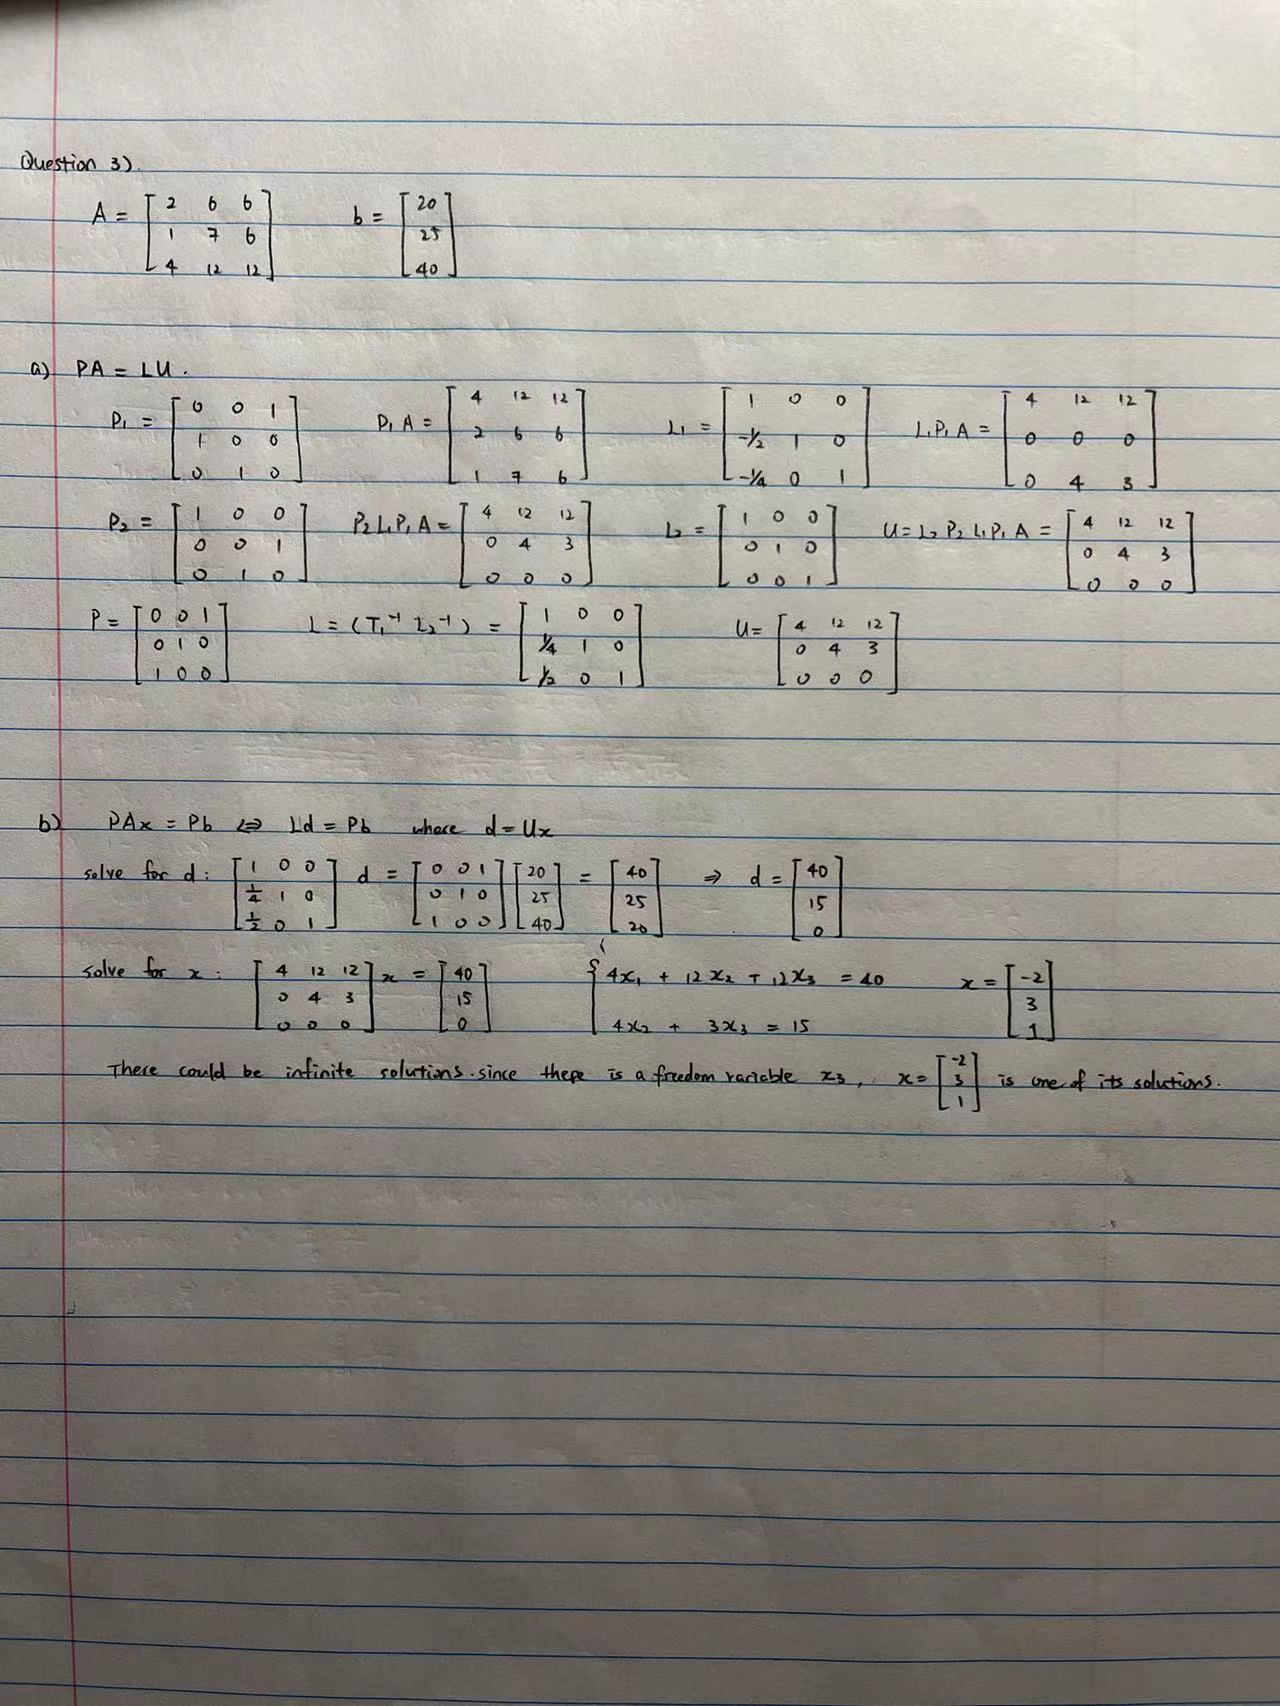 Question 3).
A = [ 2 6 6 ; 1 7 6 ; 4 12 12 ] b = [ 20 ; 25 ; 40 ]
a) PA = LU.
P₁ = [ 0 0 1 ; 1 0 0 ; 0 1 0 ] P₁A = [ 4 12 12 ; 2 6 6 ; 1 7 6 ] L₁ = [ 1 0 0 ; -1/2 1 0 ; -1/4 0 1 ] L₁P₁A = [ 4 12 12 ; 0 0 0 ; 0 4 3 ]
P₂ = [ 1 0 0 ; 0 0 1 ; 0 1 0 ] P₂L₁P₁A = [ 4 12 12 ; 0 4 3 ; 0 0 0 ] L₂ = [ 1 0 0 ; 0 1 0 ; 0 0 1 ] U = L₂P₂L₁P₁A = [ 4 12 12 ; 0 4 3 ; 0 0 0 ]
P = [ 0 0 1 ; 0 1 0 ; 1 0 0 ] L = (T₁⁻¹ L₂⁻¹) = [ 1 0 0 ; 1/4 1 0 ; 1/2 0 1 ] U = [ 4 12 12 ; 0 4 3 ; 0 0 0 ]
b) PAx = Pb ⇔ Ld = Pb where d = Ux
solve for d: [ 1 0 0 ; 1/4 1 0 ; 1/2 0 1 ] d = [ 0 0 1 ; 0 1 0 ; 1 0 0 ] [ 20 ; 25 ; 40 ] = [ 40 ; 25 ; 20 ] ⇒ d = [ 40 ; 15 ; 0 ]
solve for x: [ 4 12 12 ; 0 4 3 ; 0 0 0 ] x = [ 40 ; 15 ; 0 ] { 4x₁ + 12x₂ + 12x₃ = 40 ; 4x₂ + 3x₃ = 15 x = [ -2 ; 3 ; 1 ]
There could be infinite solutions. since there is a freedom variable x₃, x = [ -2 ; 3 ; 1 ] is one of its solutions.